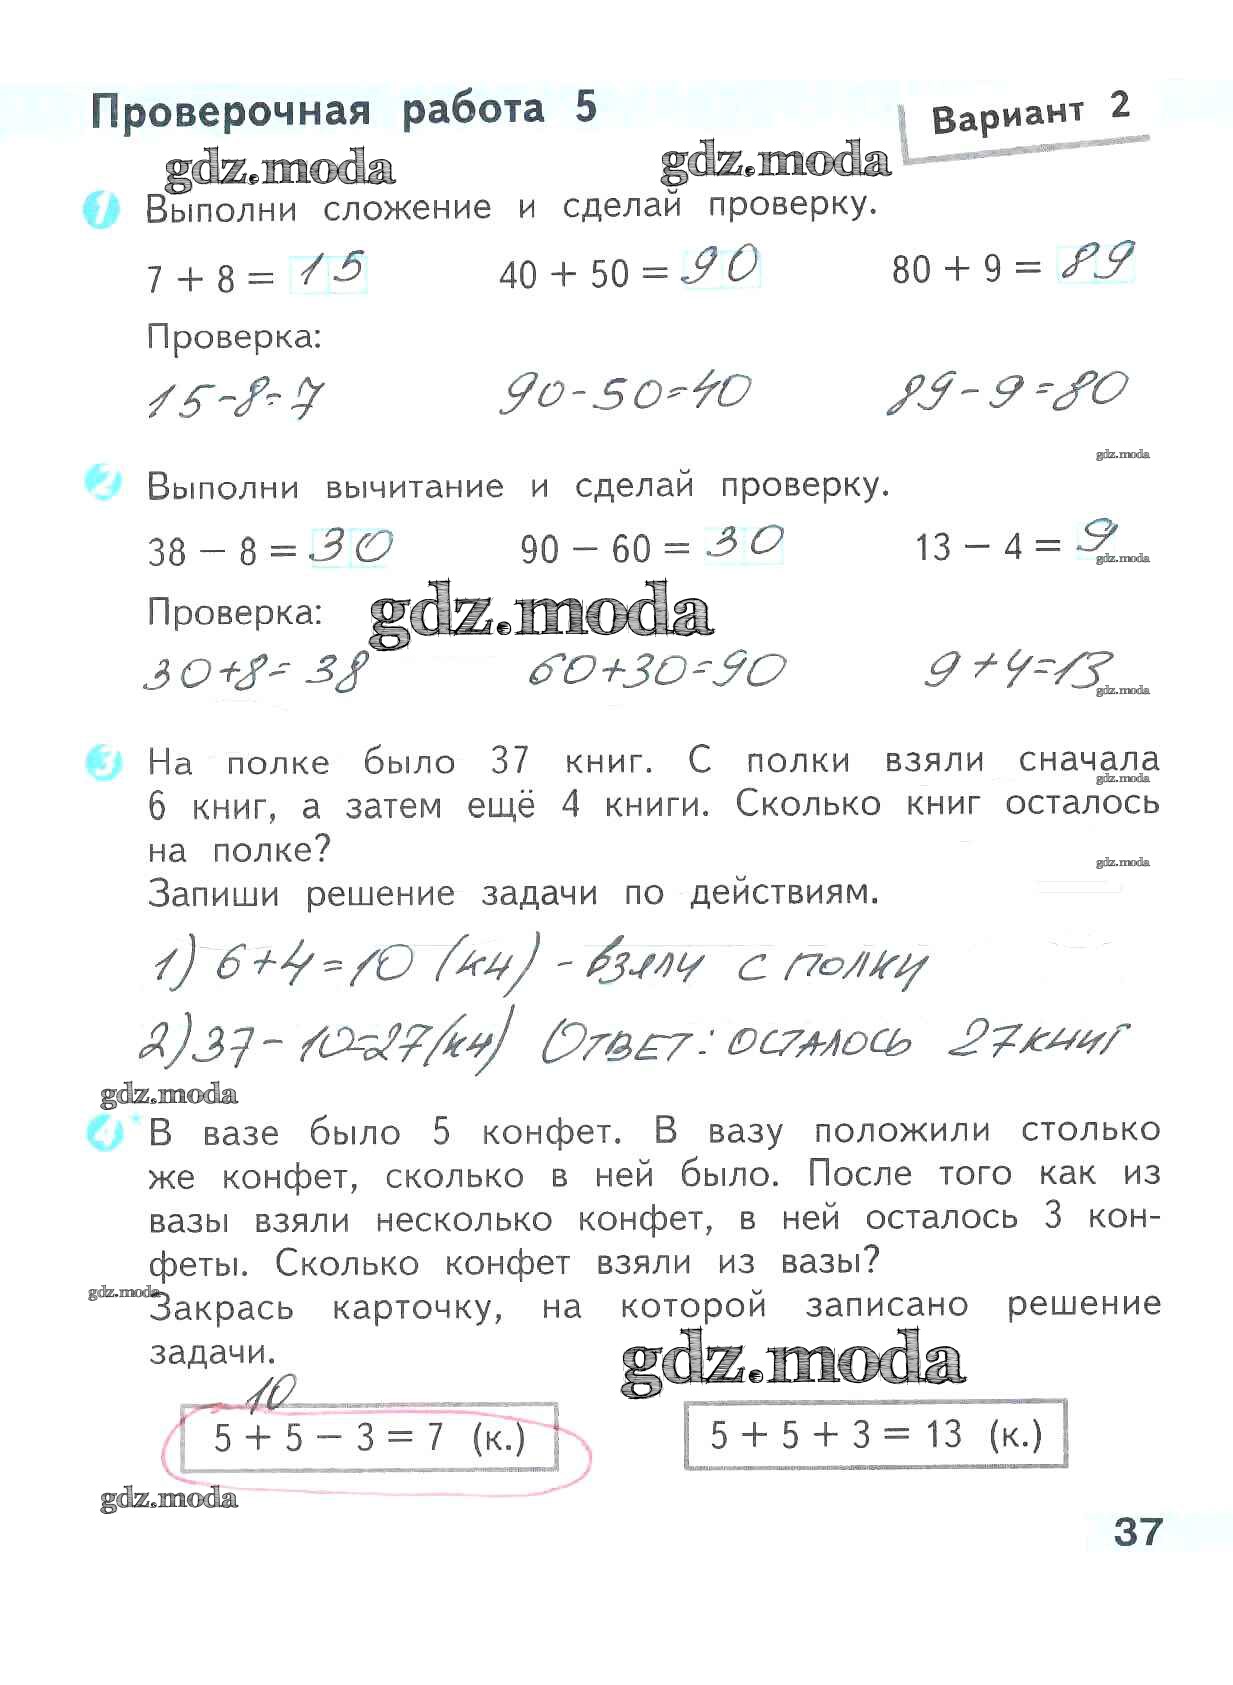 Проверочная работа 5
Вариант 2
gdz.moda gdz.moda
1 Выполни сложение и сделай проверку.
7 + 8 = 15 40 + 50 = 90 80 + 9 = 89
Проверка:
15-8=7 90-50=40 89-9=80
gdz.moda
2 Выполни вычитание и сделай проверку.
38 − 8 = 30 90 − 60 = 30 13 − 4 = 9
gdz.moda
Проверка: gdz.moda
30+8=38 60+30=90 9+4=13
gdz.moda
3 На полке было 37 книг. С полки взяли сначала
gdz.moda
6 книг, а затем ещё 4 книги. Сколько книг осталось
на полке?
gdz.moda
Запиши решение задачи по действиям.
1) 6+4=10 (кн) - взяли с полки
2) 37-10=27(кн) Ответ: осталось 27 книг
gdz.moda
4* В вазе было 5 конфет. В вазу положили столько
же конфет, сколько в ней было. После того как из
вазы взяли несколько конфет, в ней осталось 3 кон-
феты. Сколько конфет взяли из вазы?
gdz.moda
Закрась карточку, на которой записано решение
задачи.
gdz.moda
10
5 + 5 − 3 = 7 (к.) 5 + 5 + 3 = 13 (к.)
gdz.moda
37